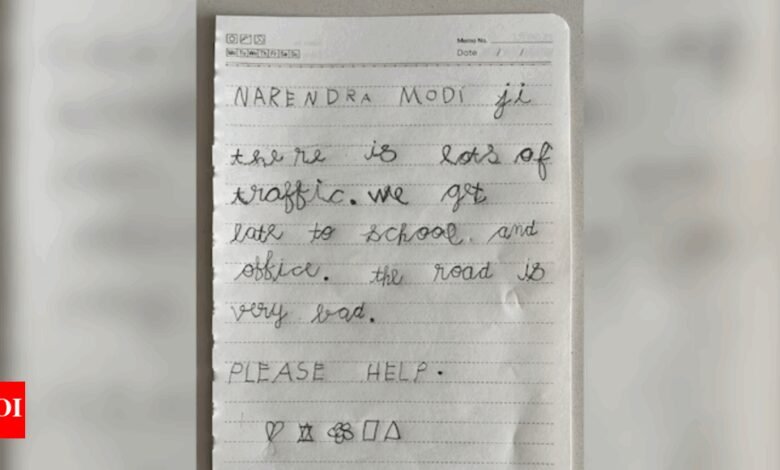 Memo No.
Mo Tu We Th Fr Sa Su
Date / /
NARENDRA MODI ji
there is lots of
traffic. we get
late to school. and
office. the road is
very bad.
PLEASE HELP.
OI